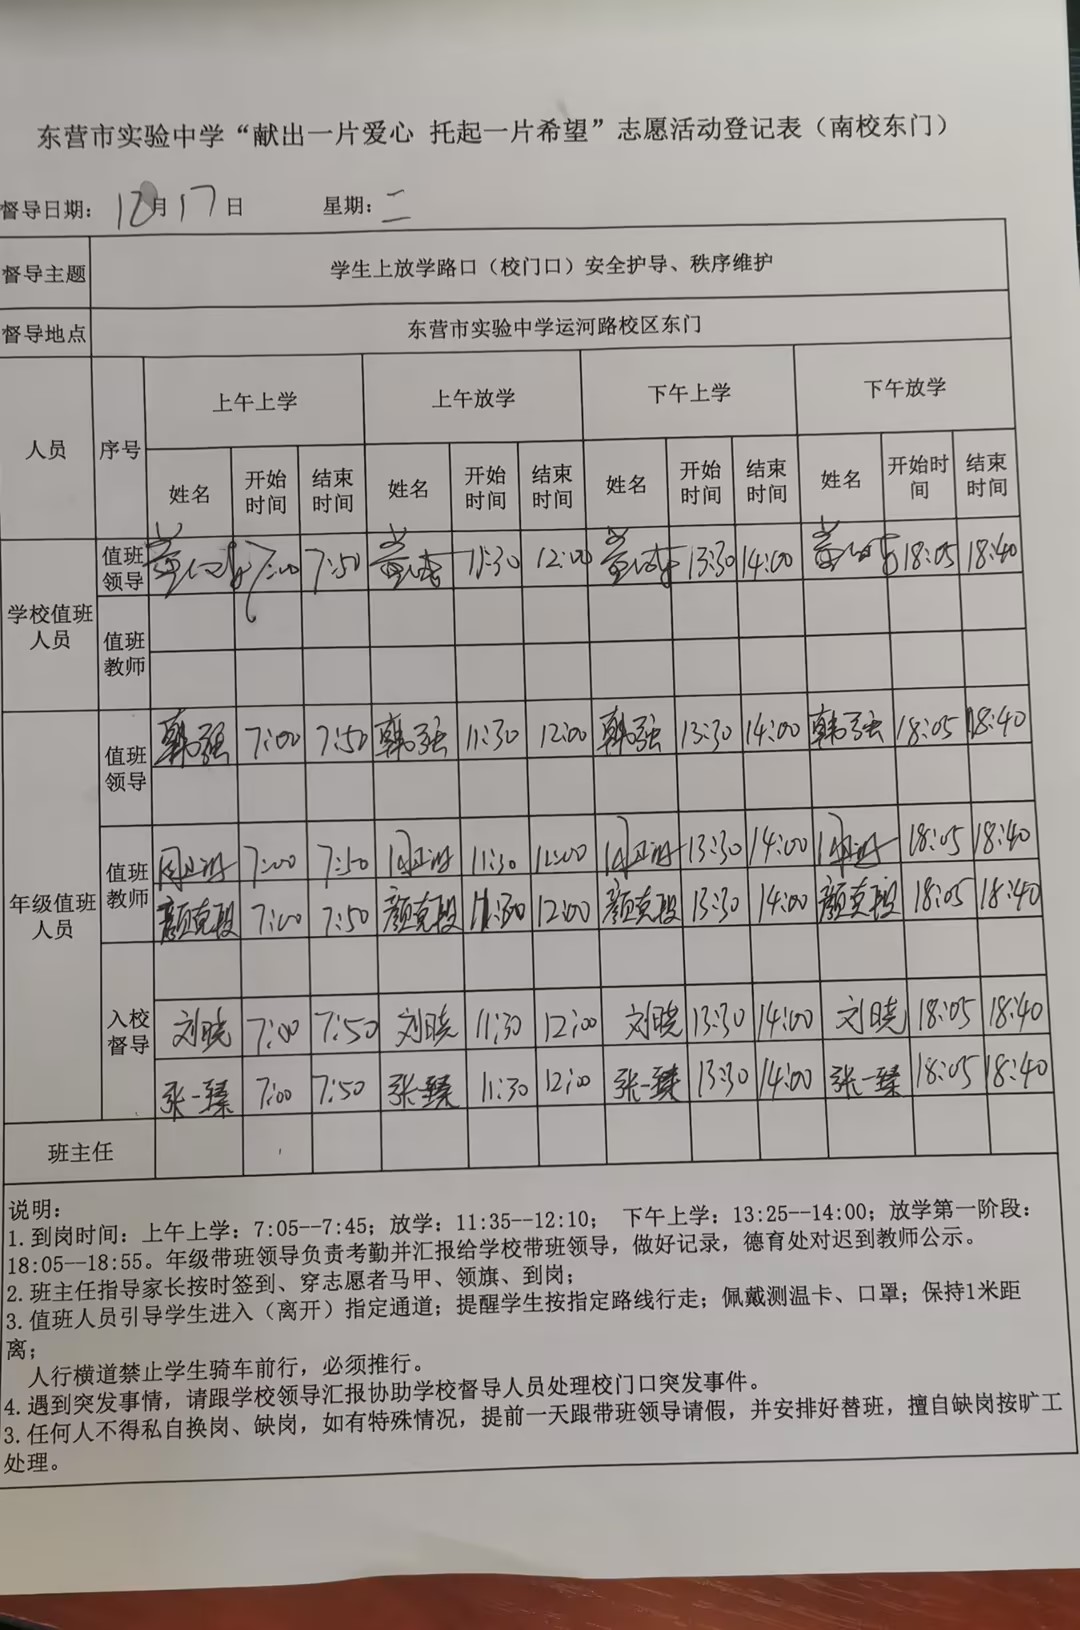 东营市实验中学“献出一片爱心 托起一片希望”志愿活动登记表（南校东门）
督导日期： 月17日 星期：二
督导主题 学生上放学路口（校门口）安全护导、秩序维护
督导地点 东营市实验中学运河路校区东门
人员 序号 上午上学 上午放学 下午上学 下午放学
姓名 开始时间 结束时间 姓名 开始时间 结束时间 姓名 开始时间 结束时间 姓名 开始时间 结束时间
学校值班人员 值班领导 7:00 7:50 11:30 12:00 13:30 14:00 18:05 18:40
值班教师
年级值班人员 值班领导 韩强 7:00 7:50 韩强 11:30 12:00 韩强 13:30 14:00 韩强 18:05 18:40
值班教师 7:00 7:50 11:30 12:00 13:30 14:00 18:05 18:40
颜克段 7:00 7:50 颜克段 11:30 12:00 颜克段 13:30 14:00 颜克段 18:05 18:40
入校督导
刘晓 7:00 7:50 刘晓 11:30 12:00 刘晓 13:30 14:00 刘晓 18:05 18:40
张一臻 7:00 7:50 张一臻 11:30 12:00 张一臻 13:30 14:00 张一臻 18:05 18:40
班主任
说明：
1.到岗时间：上午上学：7:05--7:45；放学：11:35--12:10； 下午上学：13:25--14:00；放学第一阶段：
18:05--18:55。年级带班领导负责考勤并汇报给学校带班领导，做好记录，德育处对迟到教师公示。
2.班主任指导家长按时签到、穿志愿者马甲、领旗、到岗；
3.值班人员引导学生进入（离开）指定通道；提醒学生按指定路线行走；佩戴测温卡、口罩；保持1米距
离；
人行横道禁止学生骑车前行，必须推行。
4.遇到突发事情，请跟学校领导汇报协助学校督导人员处理校门口突发事件。
3.任何人不得私自换岗、缺岗，如有特殊情况，提前一天跟带班领导请假，并安排好替班，擅自缺岗按旷工
处理。